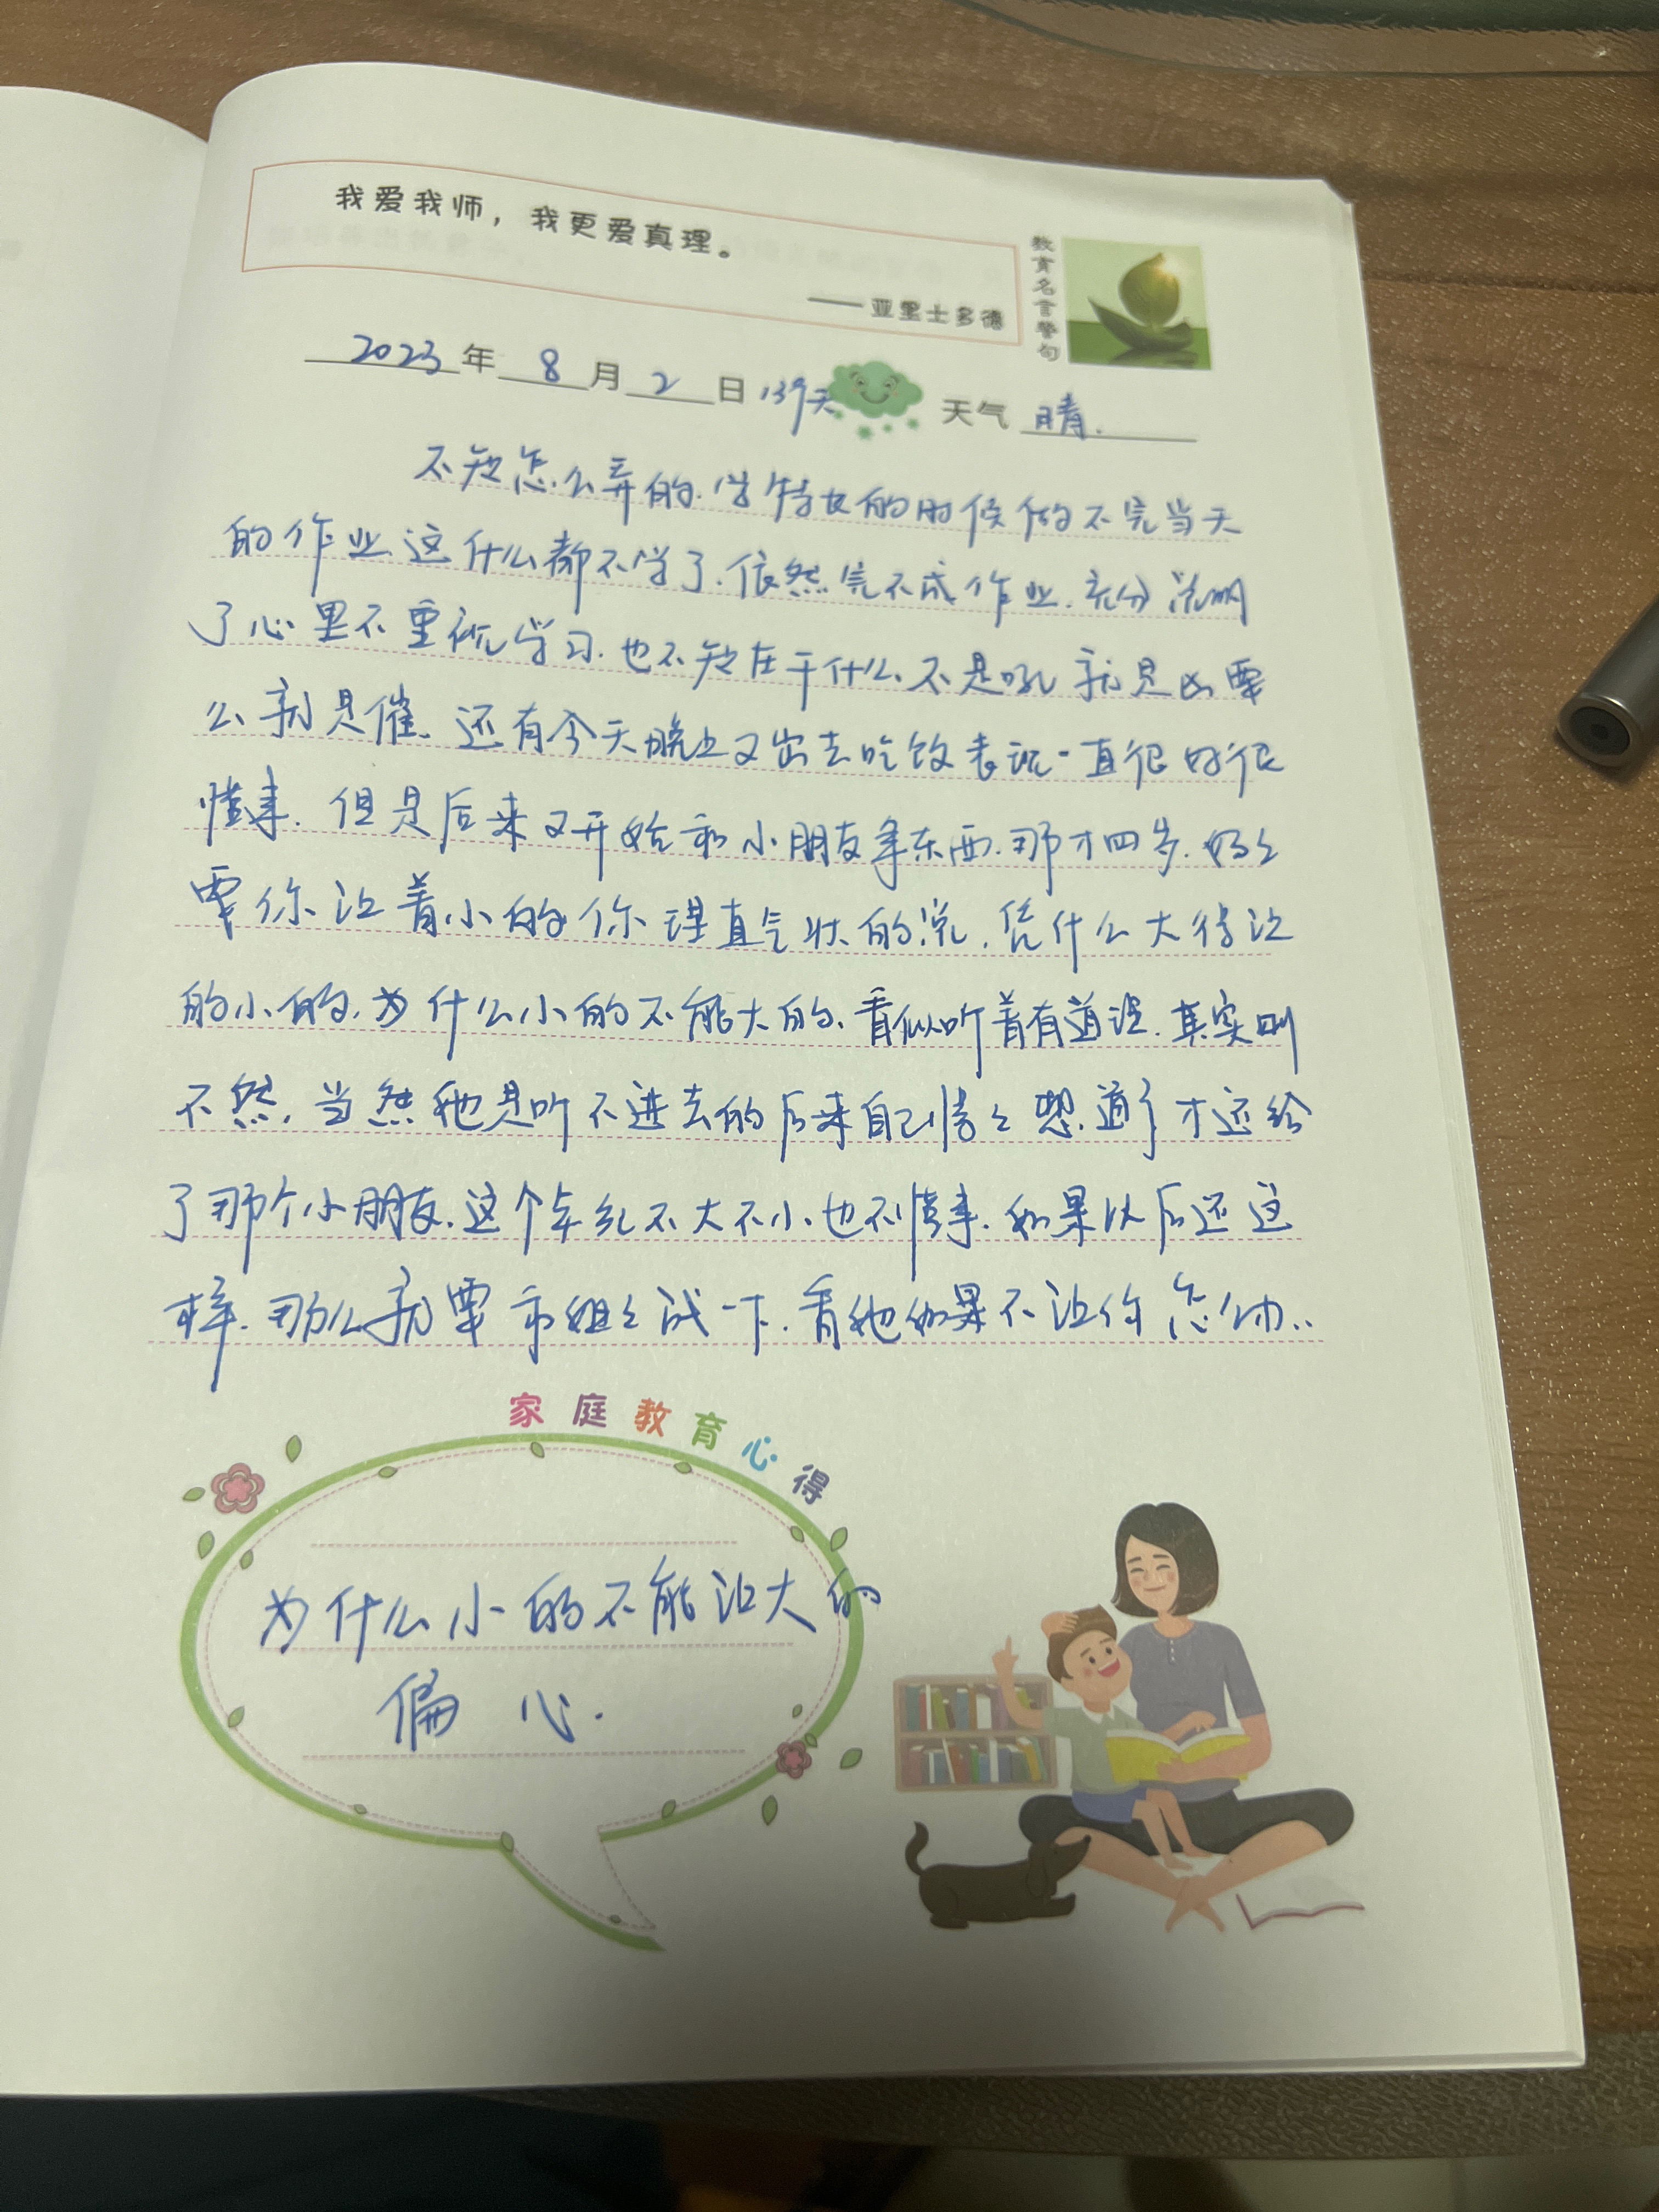 我爱我师，我更爱真理。
——亚里士多德
教育名言警句
2023年8月2日139天 天气晴.
不知怎么弄的.学特长的时候做不完当天
的作业这什么都不学了.依然完不成作业.充分说明
了心里不重视学习.也不知在干什么.不是吼就是凶要
么就是催.还有今天晚上又出去吃饭表现一直很好很
懂事.但是后来又开始和小朋友拿东西.那才四岁.好么
要你让着小的你理直气壮的说.凭什么大得让
的小的.为什么小的不能大的.看似听着有道理.其实则
不然.当然他是听不进去的后来自己想通了才还给
了那个小朋友.这个年纪不大不小也不懂事.如果以后还这
样.那么就要市姐姐试一下.看他如果不让你怎么办..
家庭教育心得
为什么小的不能让大的
偏心.